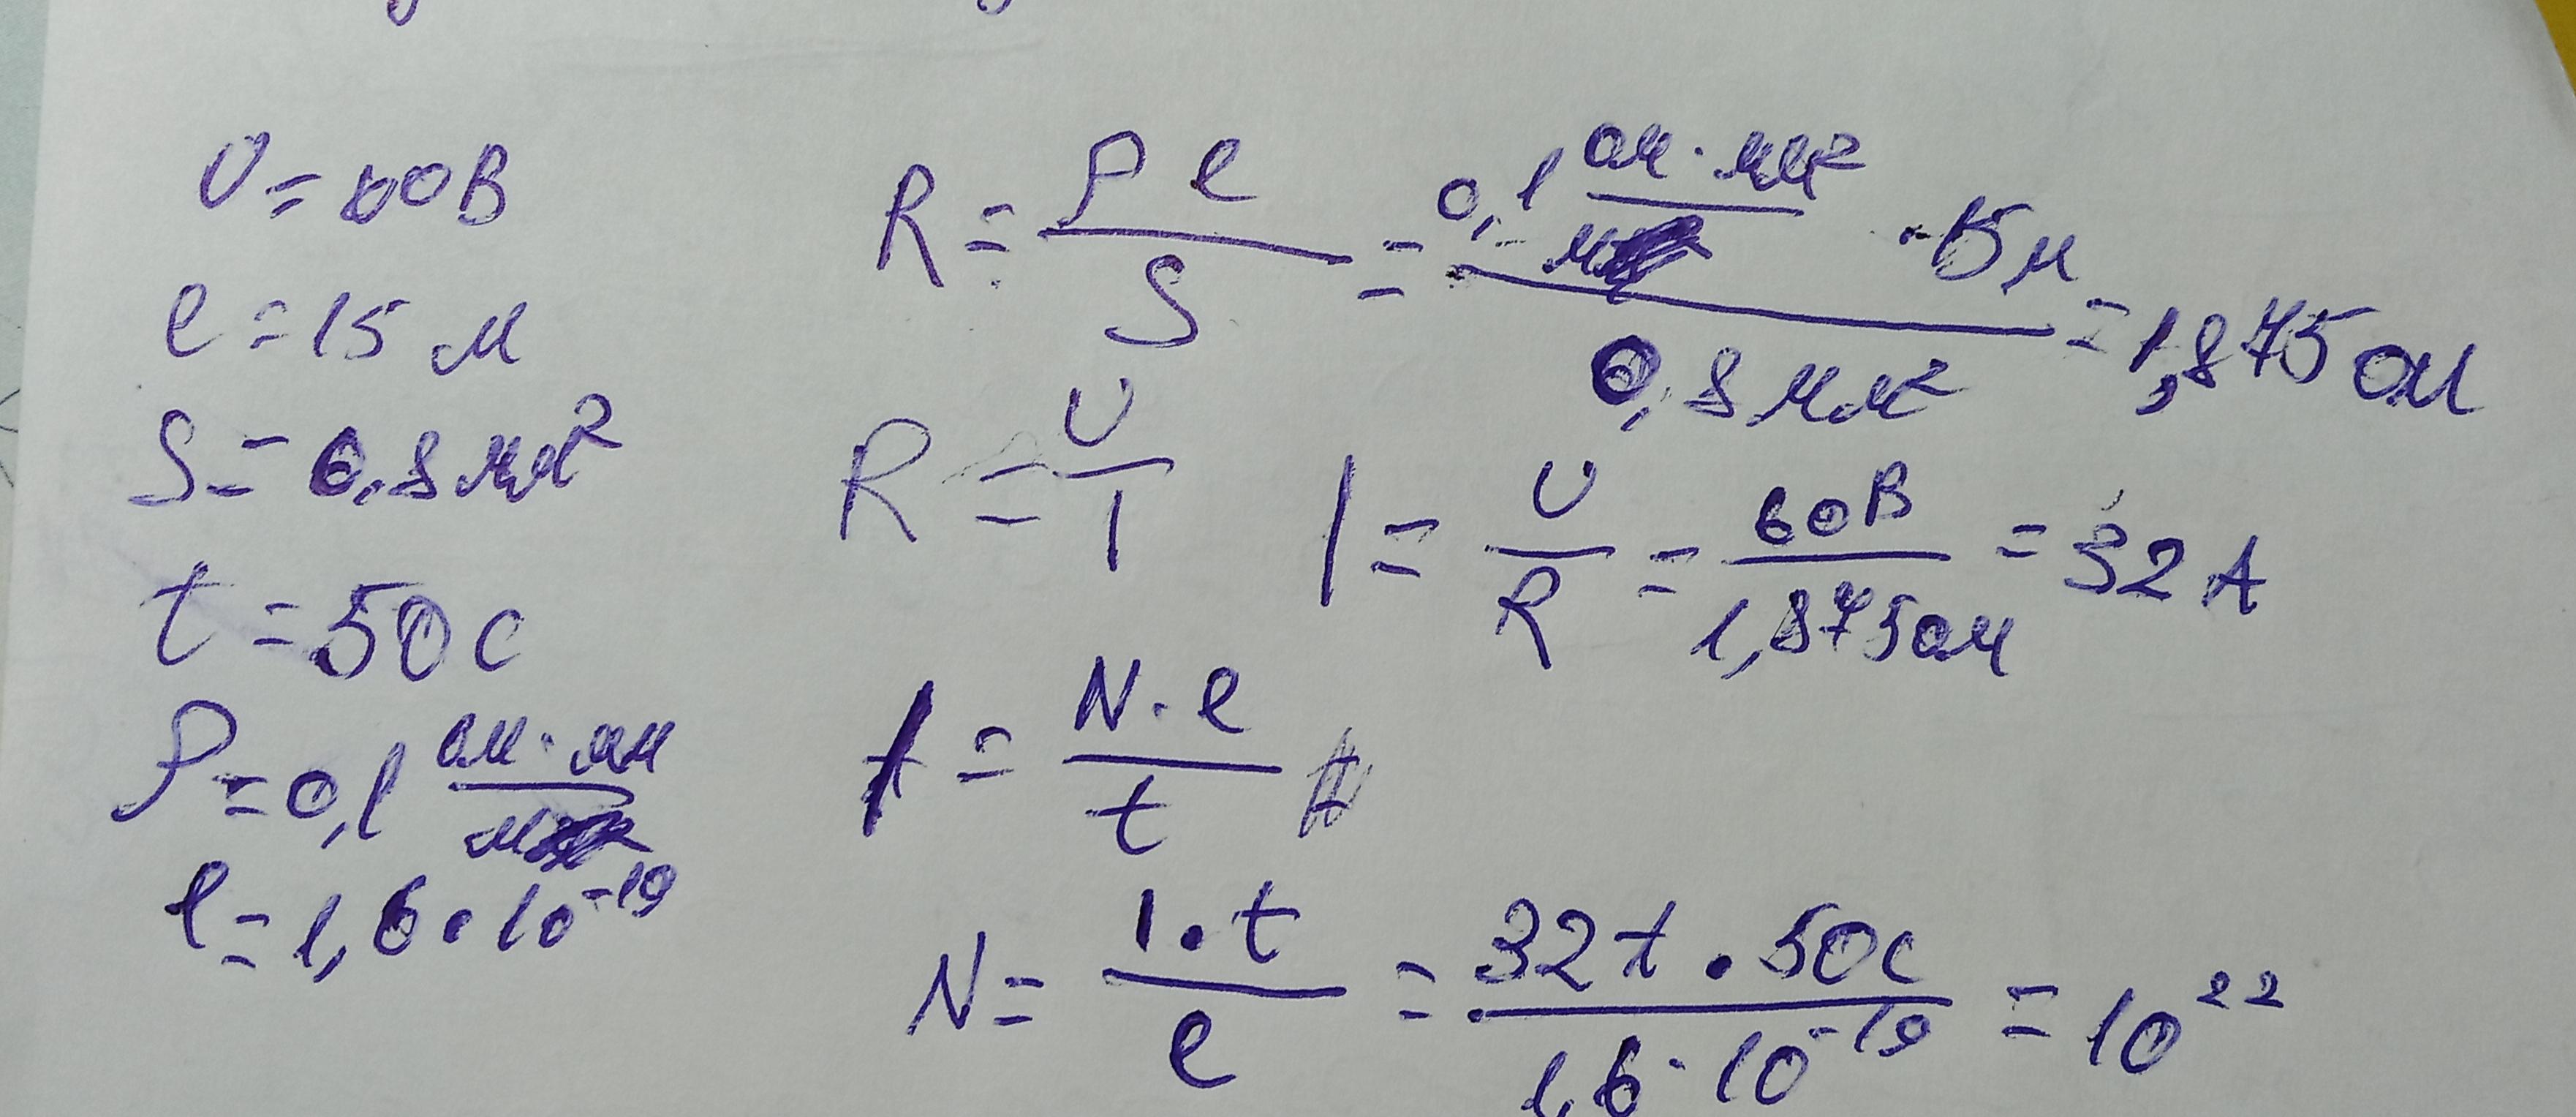 U = 60В
l = 15 м
S = 0,8 мм²
t = 50 с
ρ = 0,1 ом · мм / м
e = 1,6 · 10⁻¹⁹
R = ρ l / S = 0,1 ом · мм² / м · 15 м / 0,8 мм² = 1,875 ом
R = U / I
I = U / R = 60В / 1,875 ом = 32 А
I = N · e / t
N = I · t / e = 32А · 50с / 1,6 · 10⁻¹⁹ = 10²²